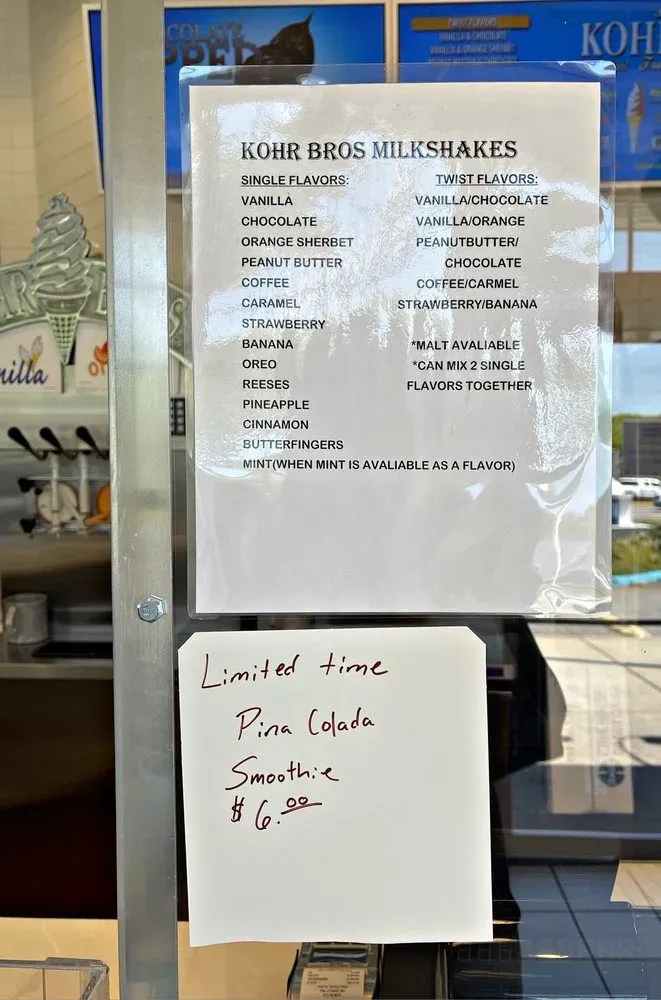 TWIST FLAVORS
VANILLA & CHOCOLATE
VANILLA & ORANGE SHERBET
KOHR BROS MILKSHAKES
SINGLE FLAVORS:
VANILLA
CHOCOLATE
ORANGE SHERBET
PEANUT BUTTER
COFFEE
CARAMEL
STRAWBERRY
BANANA
OREO
REESES
PINEAPPLE
CINNAMON
BUTTERFINGERS
MINT(WHEN MINT IS AVALIABLE AS A FLAVOR)
TWIST FLAVORS:
VANILLA/CHOCOLATE
VANILLA/ORANGE
PEANUTBUTTER/
CHOCOLATE
COFFEE/CARMEL
STRAWBERRY/BANANA
*MALT AVALIABLE
*CAN MIX 2 SINGLE
FLAVORS TOGETHER
Limited time
Pina Colada
Smoothie
$6.00